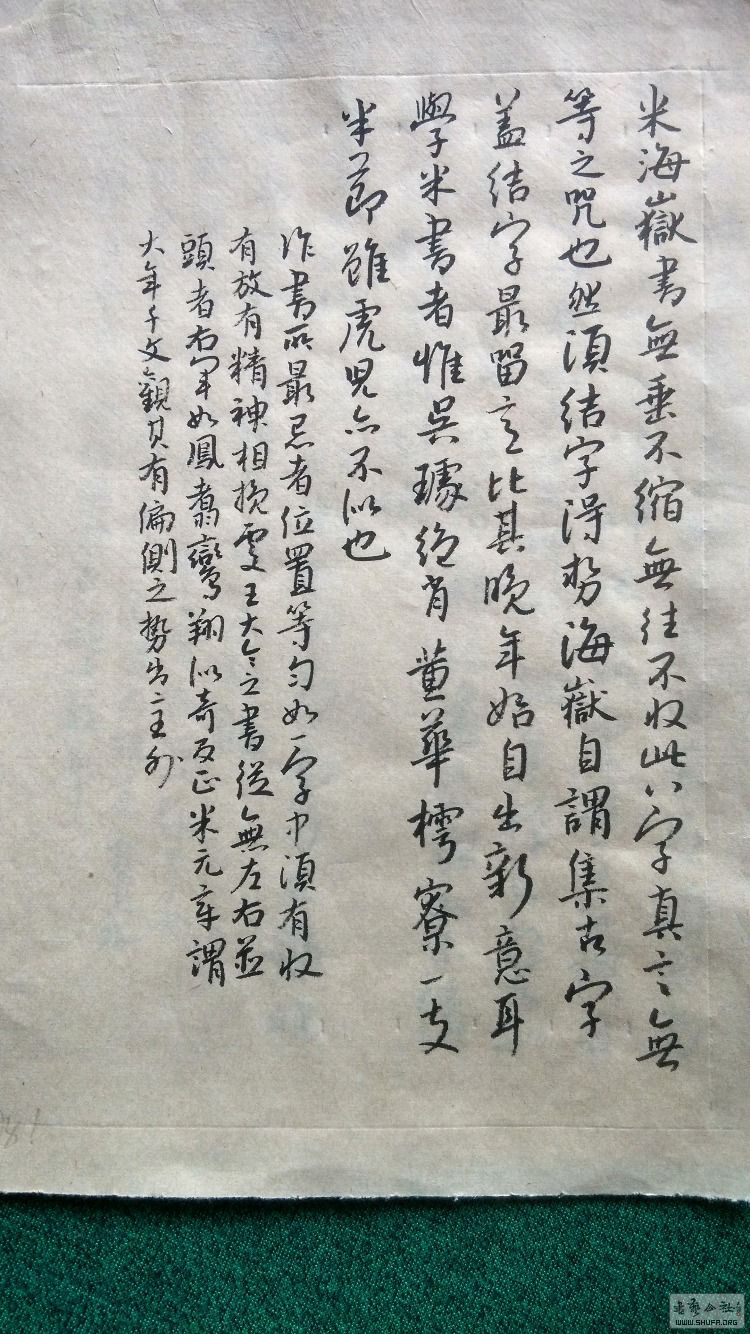 米海嶽書無垂不縮無往不收此八字真言無
等之咒也然須結字得勢海嶽自謂集古字
蓋結字最留意比其晚年始自出新意耳
學米書者惟吳琚絕肖黃華樗寮一支
半節雖虎兒亦不似也
作書所最忌者位置等勻如一字中須有收
有放有精神相挽處王大令之書從無左右並
頭者右軍如鳳翥鸞翔似奇反正米元章謂
大年千文觀其有偏側之勢出二王外
WWW.SHUFA.ORG